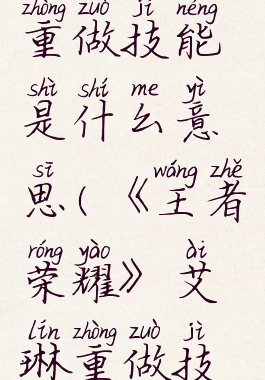 zhòng zuò jì néng
重做技能
shì shí me yì
是什么意
sī wáng zhě
思(《王者
róng yào ài
荣耀》艾
lín zhòng zuò jì
琳重做技